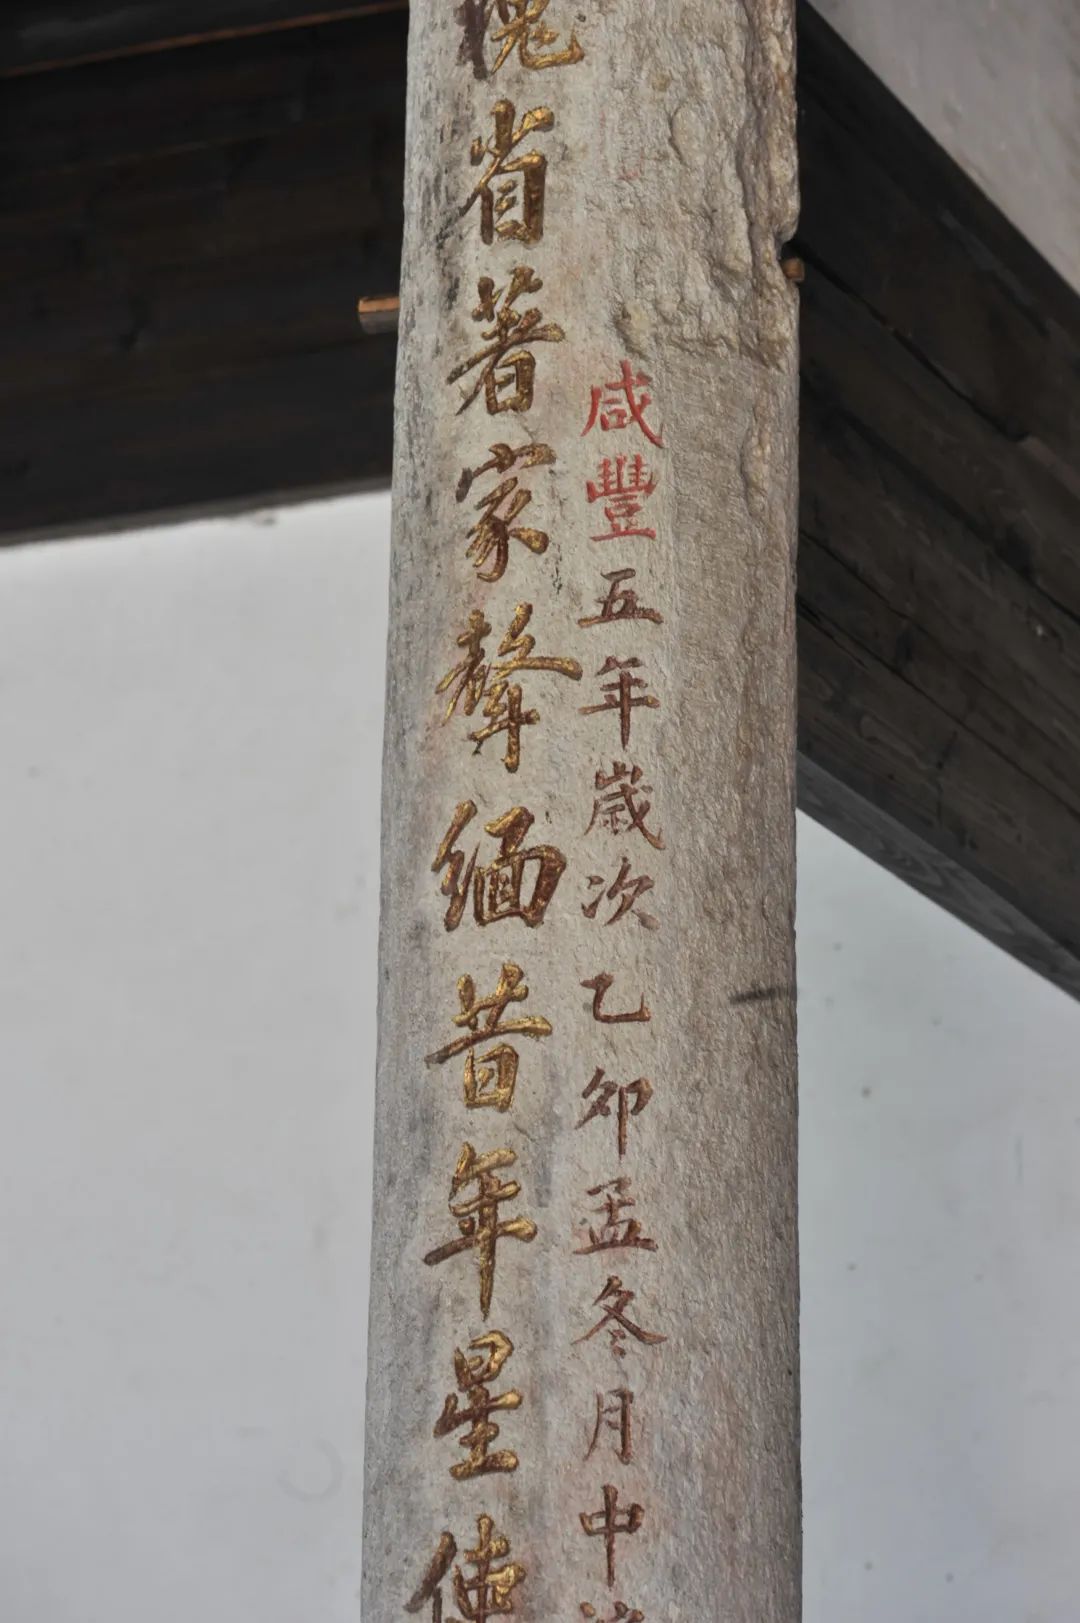 咸豐五年歲次乙卯孟冬月中
省著家聲緬昔年星使